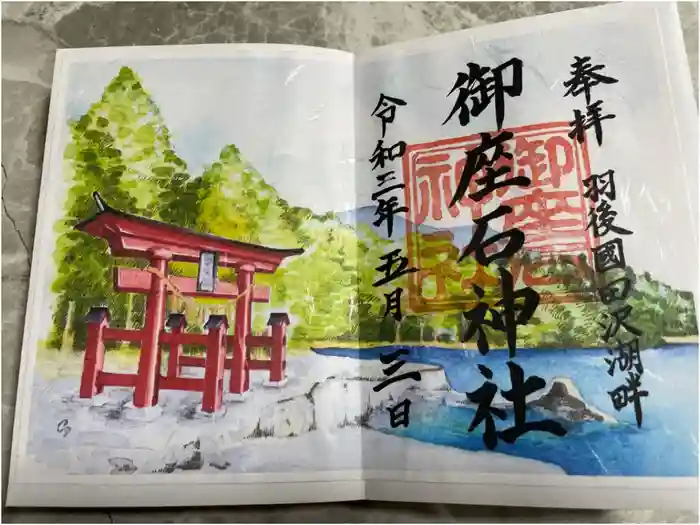 奉拝 羽後國田沢湖畔
御座石神社
令和三年五月三日
御座石
神社